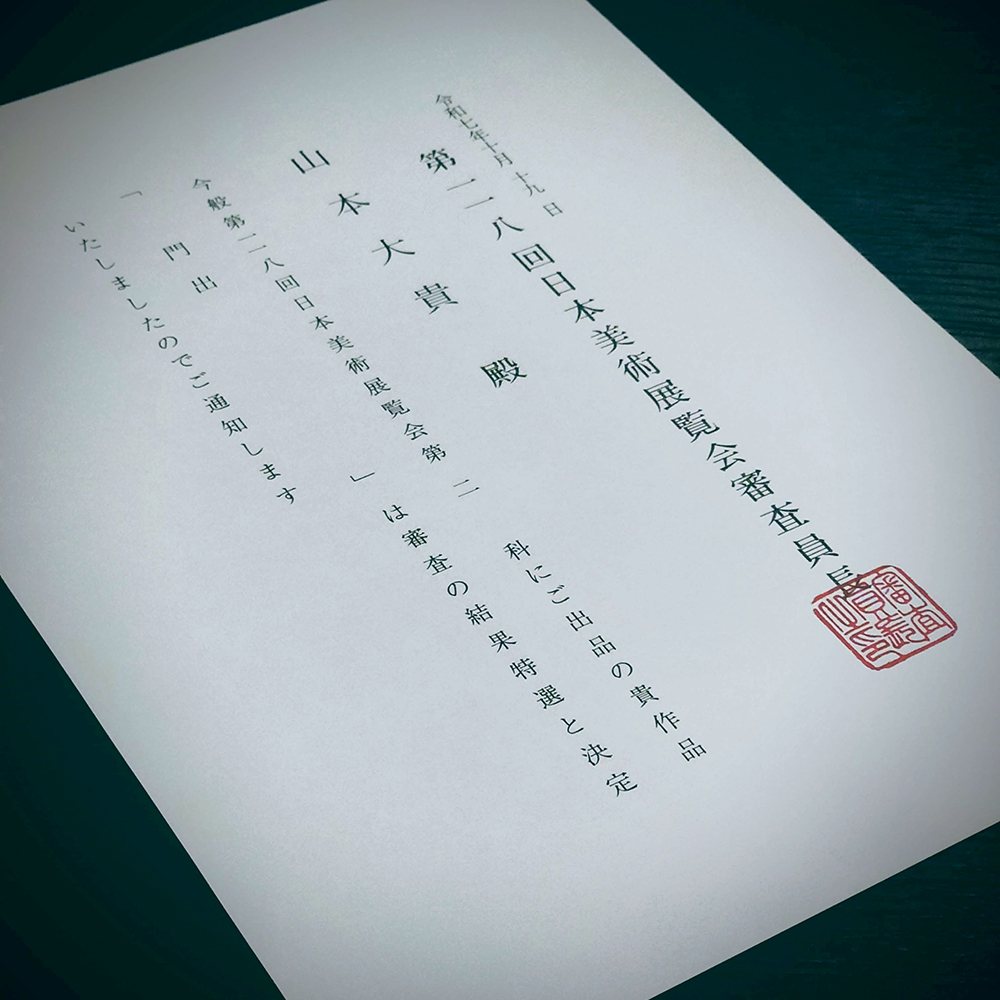 令和七年十月十九日
第一一八回日本美術展覧会審査員長
審査員長之印
山本大貴 殿
今般第一一八回日本美術展覧会第二科にご出品の貴作品
「門出」は審査の結果特選と決定
いたしましたのでご通知します